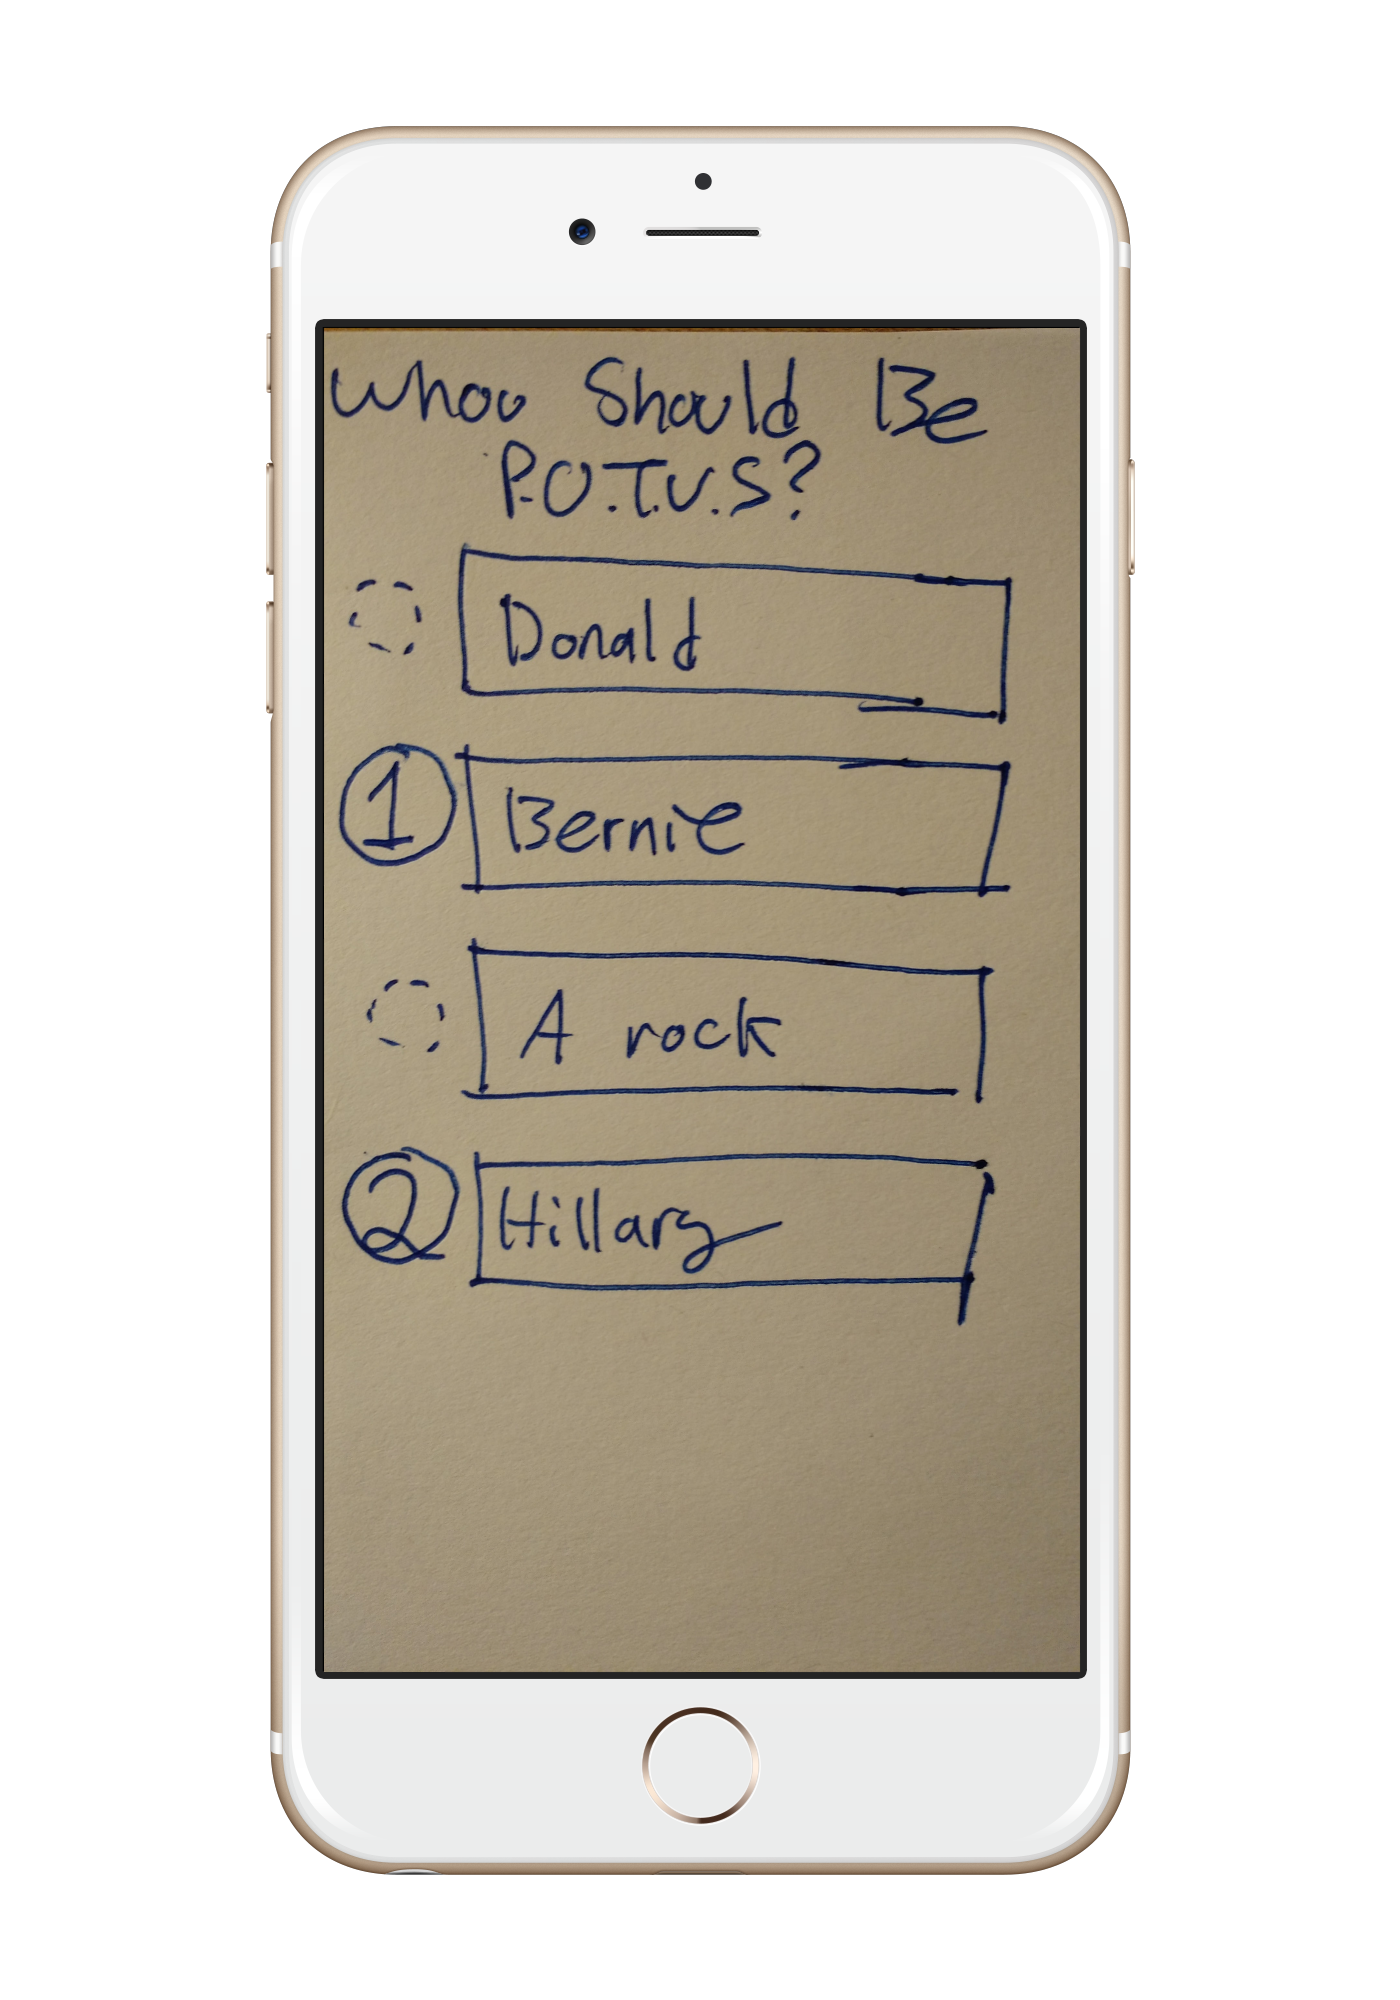 Whoo Should Be
P.O.T.U.S?
Donald
1 Bernie
A rock
2 Hillary